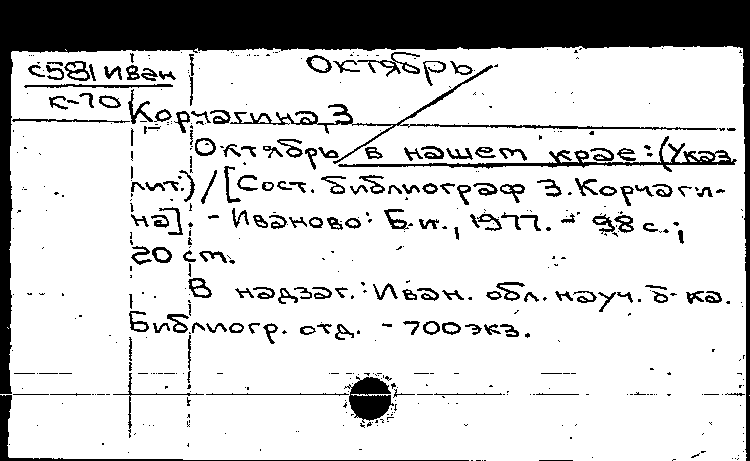 Октябрь
с581 Иван
К-70
Корчагина, З
Октябрь в нашем крае: (Указ.
лит.) / [Сост. библиограф З. Корчаги-
на]. - Иваново: Б.и., 1977. - 98 с.;
20 см.
В надзаг.: Иван. обл. науч. б-ка.
Библиогр. отд. - 700 экз.